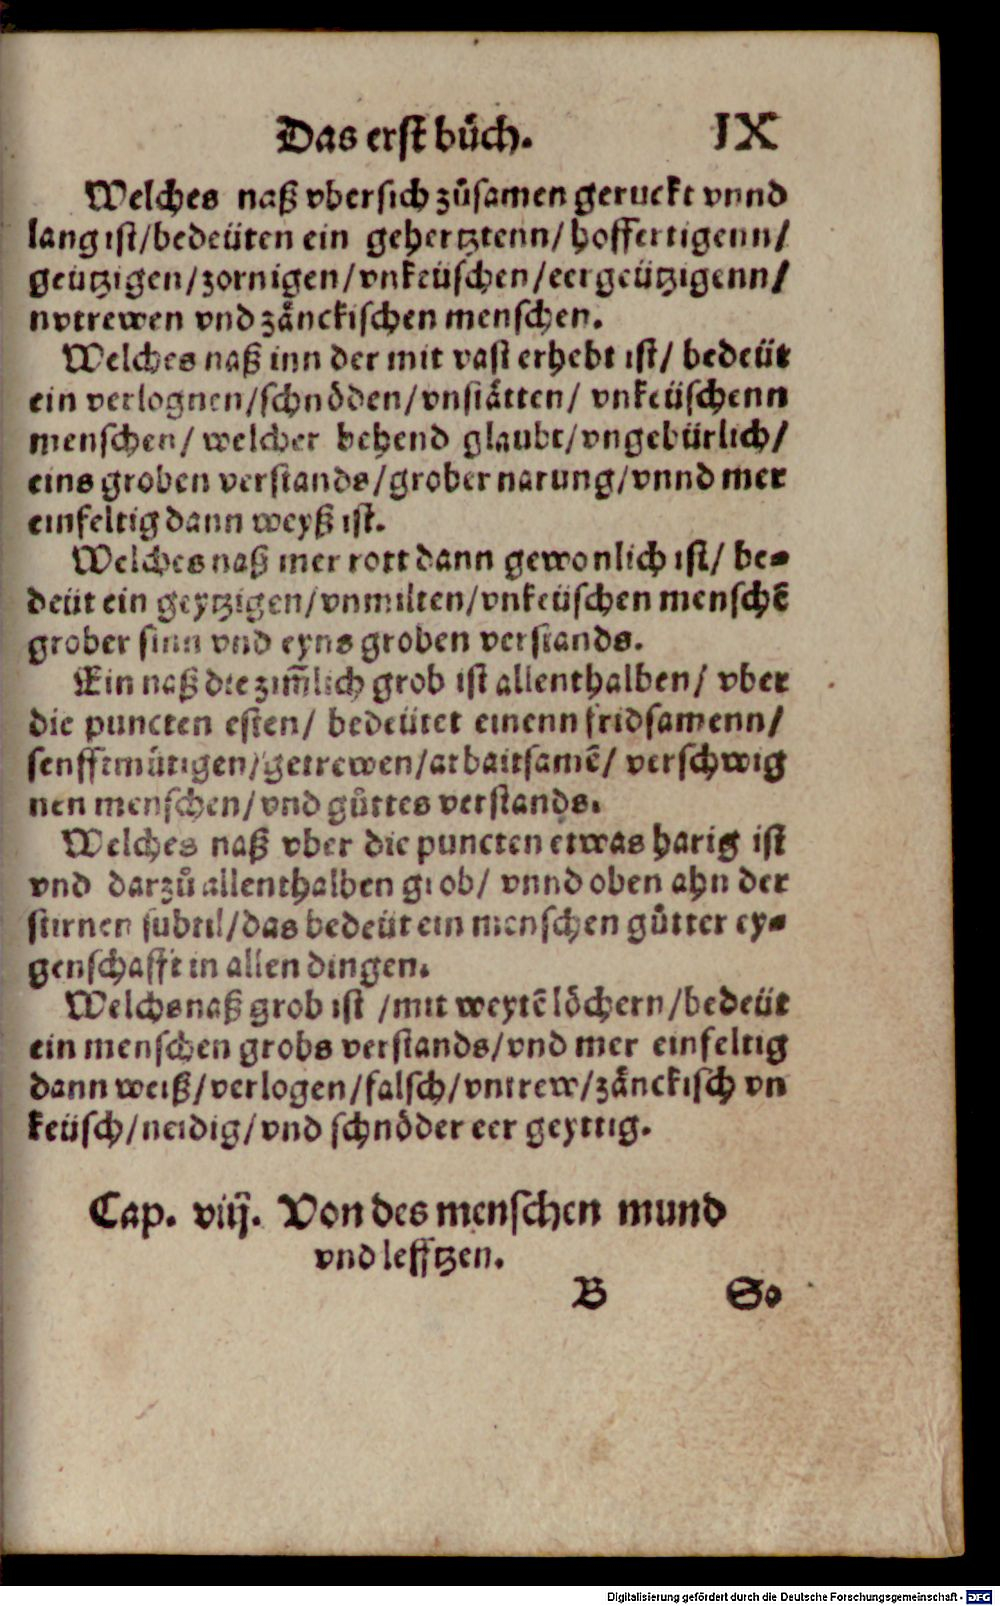 Das erst bůch. IX
Welches naß vbersich zůsamen geruckt vnnd
lang ist/bedeüten ein gehertztenn/ hoffertigenn/
geützigen/zornigen/vnkeüschen/eergeützigenn/
nvtrewen vnd zänckischen menschen.
Welches naß inn der mit vast erhebt ist/ bedeüt
ein verlognen/schnöden/vnstätten/ vnkeüschenn
menschen/ welcher behend glaubt/vngebürlich/
eins groben verstands/grober narung/vnnd mer
einfeltig dann weyß ist.
Welches naß mer rott dann gewonlich ist/ be-
deüt ein geytzigen/vnmilten/vnkeüschen menschē
grober sinn vnd eyns groben verstands.
Ein naß die zim̄lich grob ist allenthalben/ vber
die puncten esten/ bedeütet einenn fridsamenn/
senfftmütigen/getrewen/arbaitsamē/ verschwig
nen menschen/vnd gůttes verstands.
Welches naß vber die puncten etwas harig ist
vnd darzů allenthalben grob/ vnnd oben ahn der
stirnen subtil/das bedeüt ein menschen gůtter ey-
genschafft in allen dingen.
Welchs naß grob ist /mit weytē löchern/bedeüt
ein menschen grobs verstands/vnd mer einfeltig
dann weiß/verlogen/falsch/vntrew/zänckisch vn
keüsch/neidig/vnd schnöder eer geyttig.
Cap. viij. Von des menschen mund
vnd lefftzen.
B So
Digitalisierung gefördert durch die Deutsche Forschungsgemeinschaft - DFG